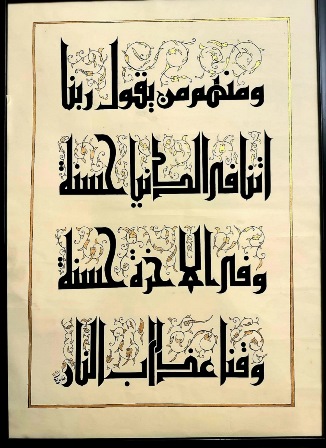 ومنهم من يقول ربنا
اتنا في الدنيا حسنة
وفي الاخرة حسنة
وقنا عذاب النار